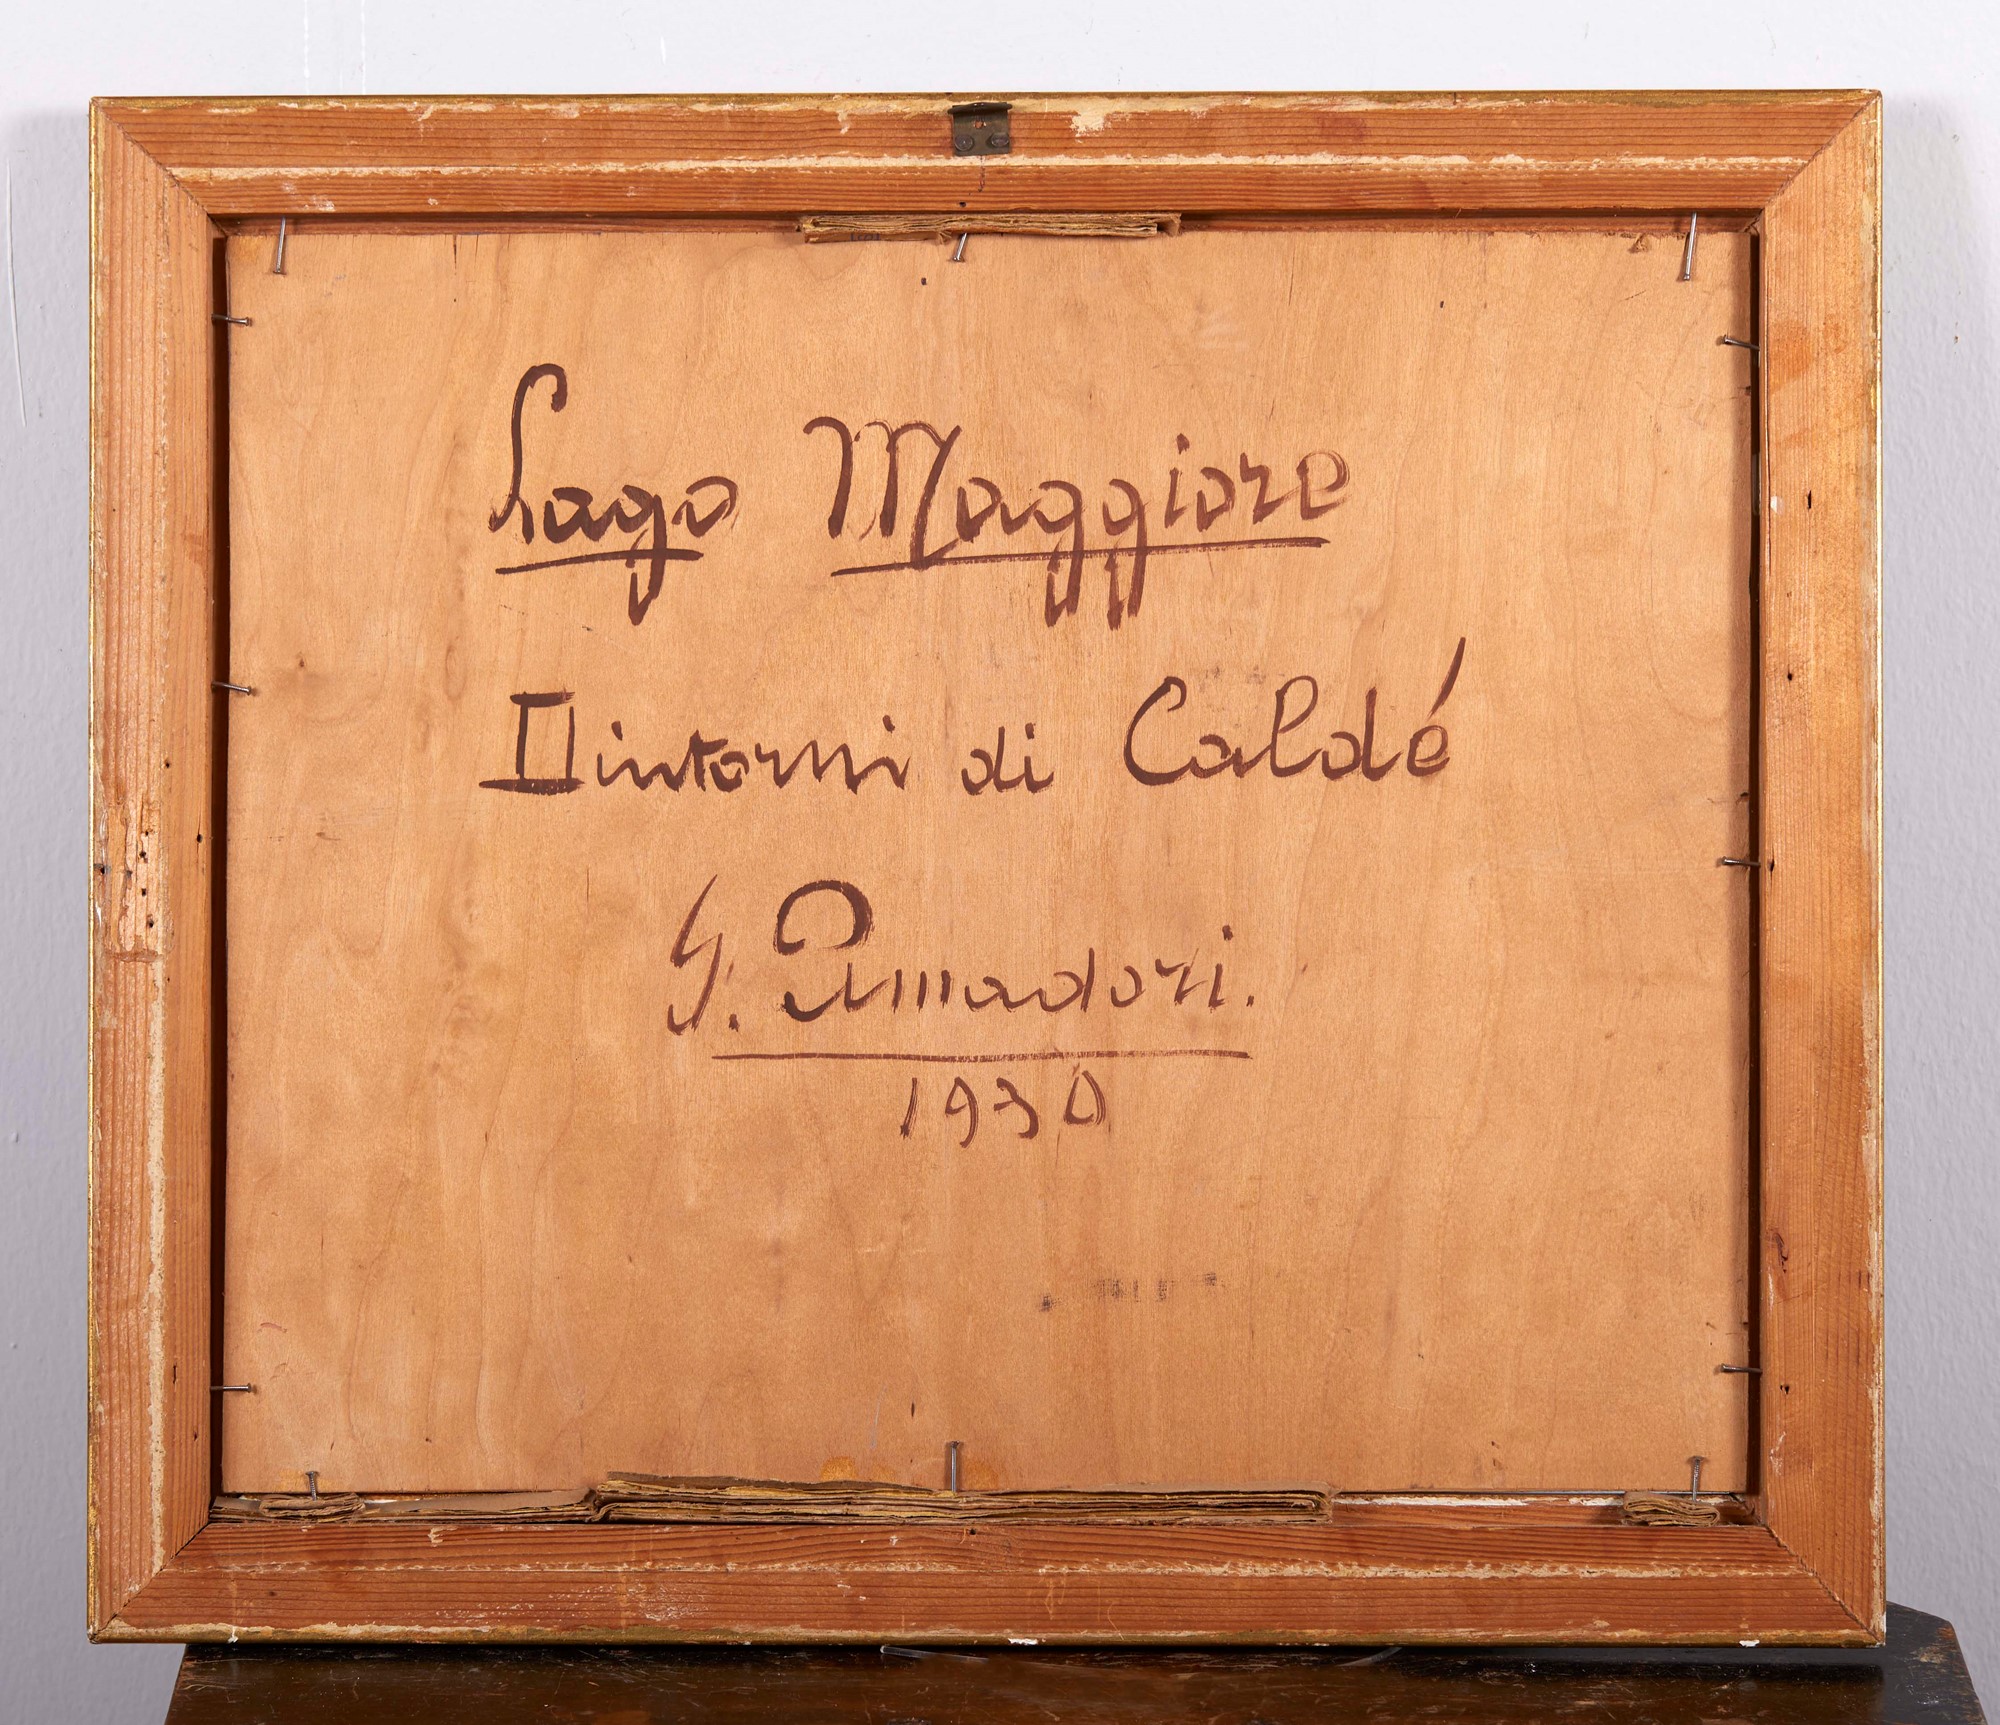 Lago Maggiore
Dintorni di Caldé
G. Amadori.
1930